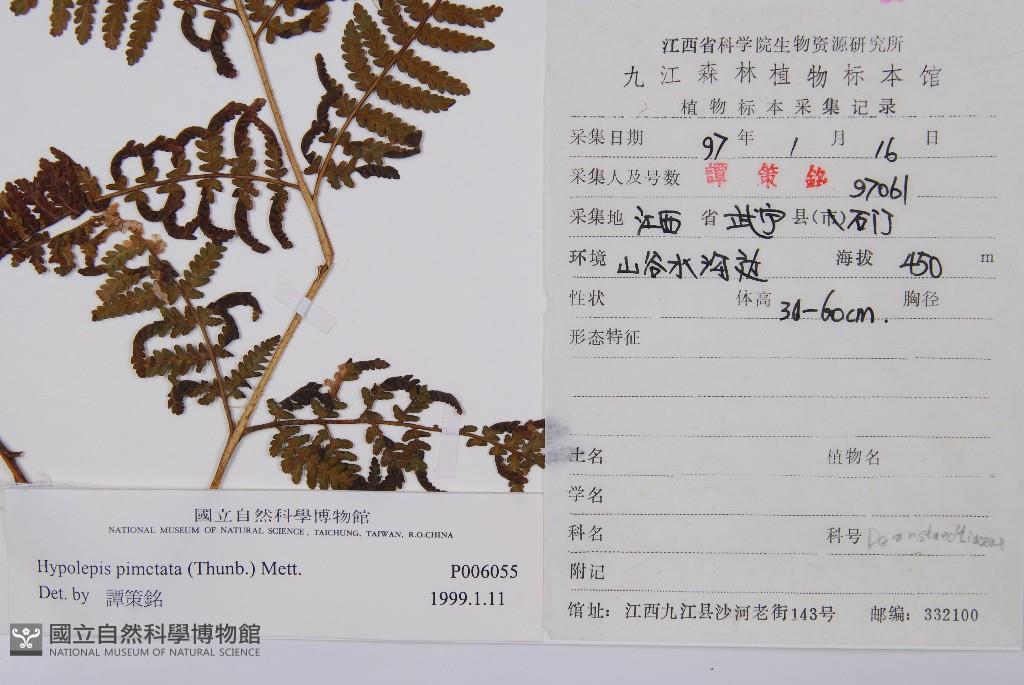 江西省科学院生物资源研究所
九江森林植物标本馆
植物标本采集记录
采集日期 97 年 1 月 16 日
采集人及号数 譚策銘 97061
采集地 江西 省 武宁 县(市) 石门
环境 山谷水沟边 海拔 450 m
性状 体高 30-60cm. 胸径
形态特征
土名 植物名
学名
科名 科号 Dennstaedtiaceae
附记
馆址: 江西九江县沙河老街143号 邮编: 332100
國立自然科學博物館
NATIONAL MUSEUM OF NATURAL SCIENCE, TAICHUNG, TAIWAN, R.O.CHINA
Hypolepis pimctata (Thunb.) Mett. P006055
Det. by 譚策銘 1999.1.11
國立自然科學博物館
NATIONAL MUSEUM OF NATURAL SCIENCE